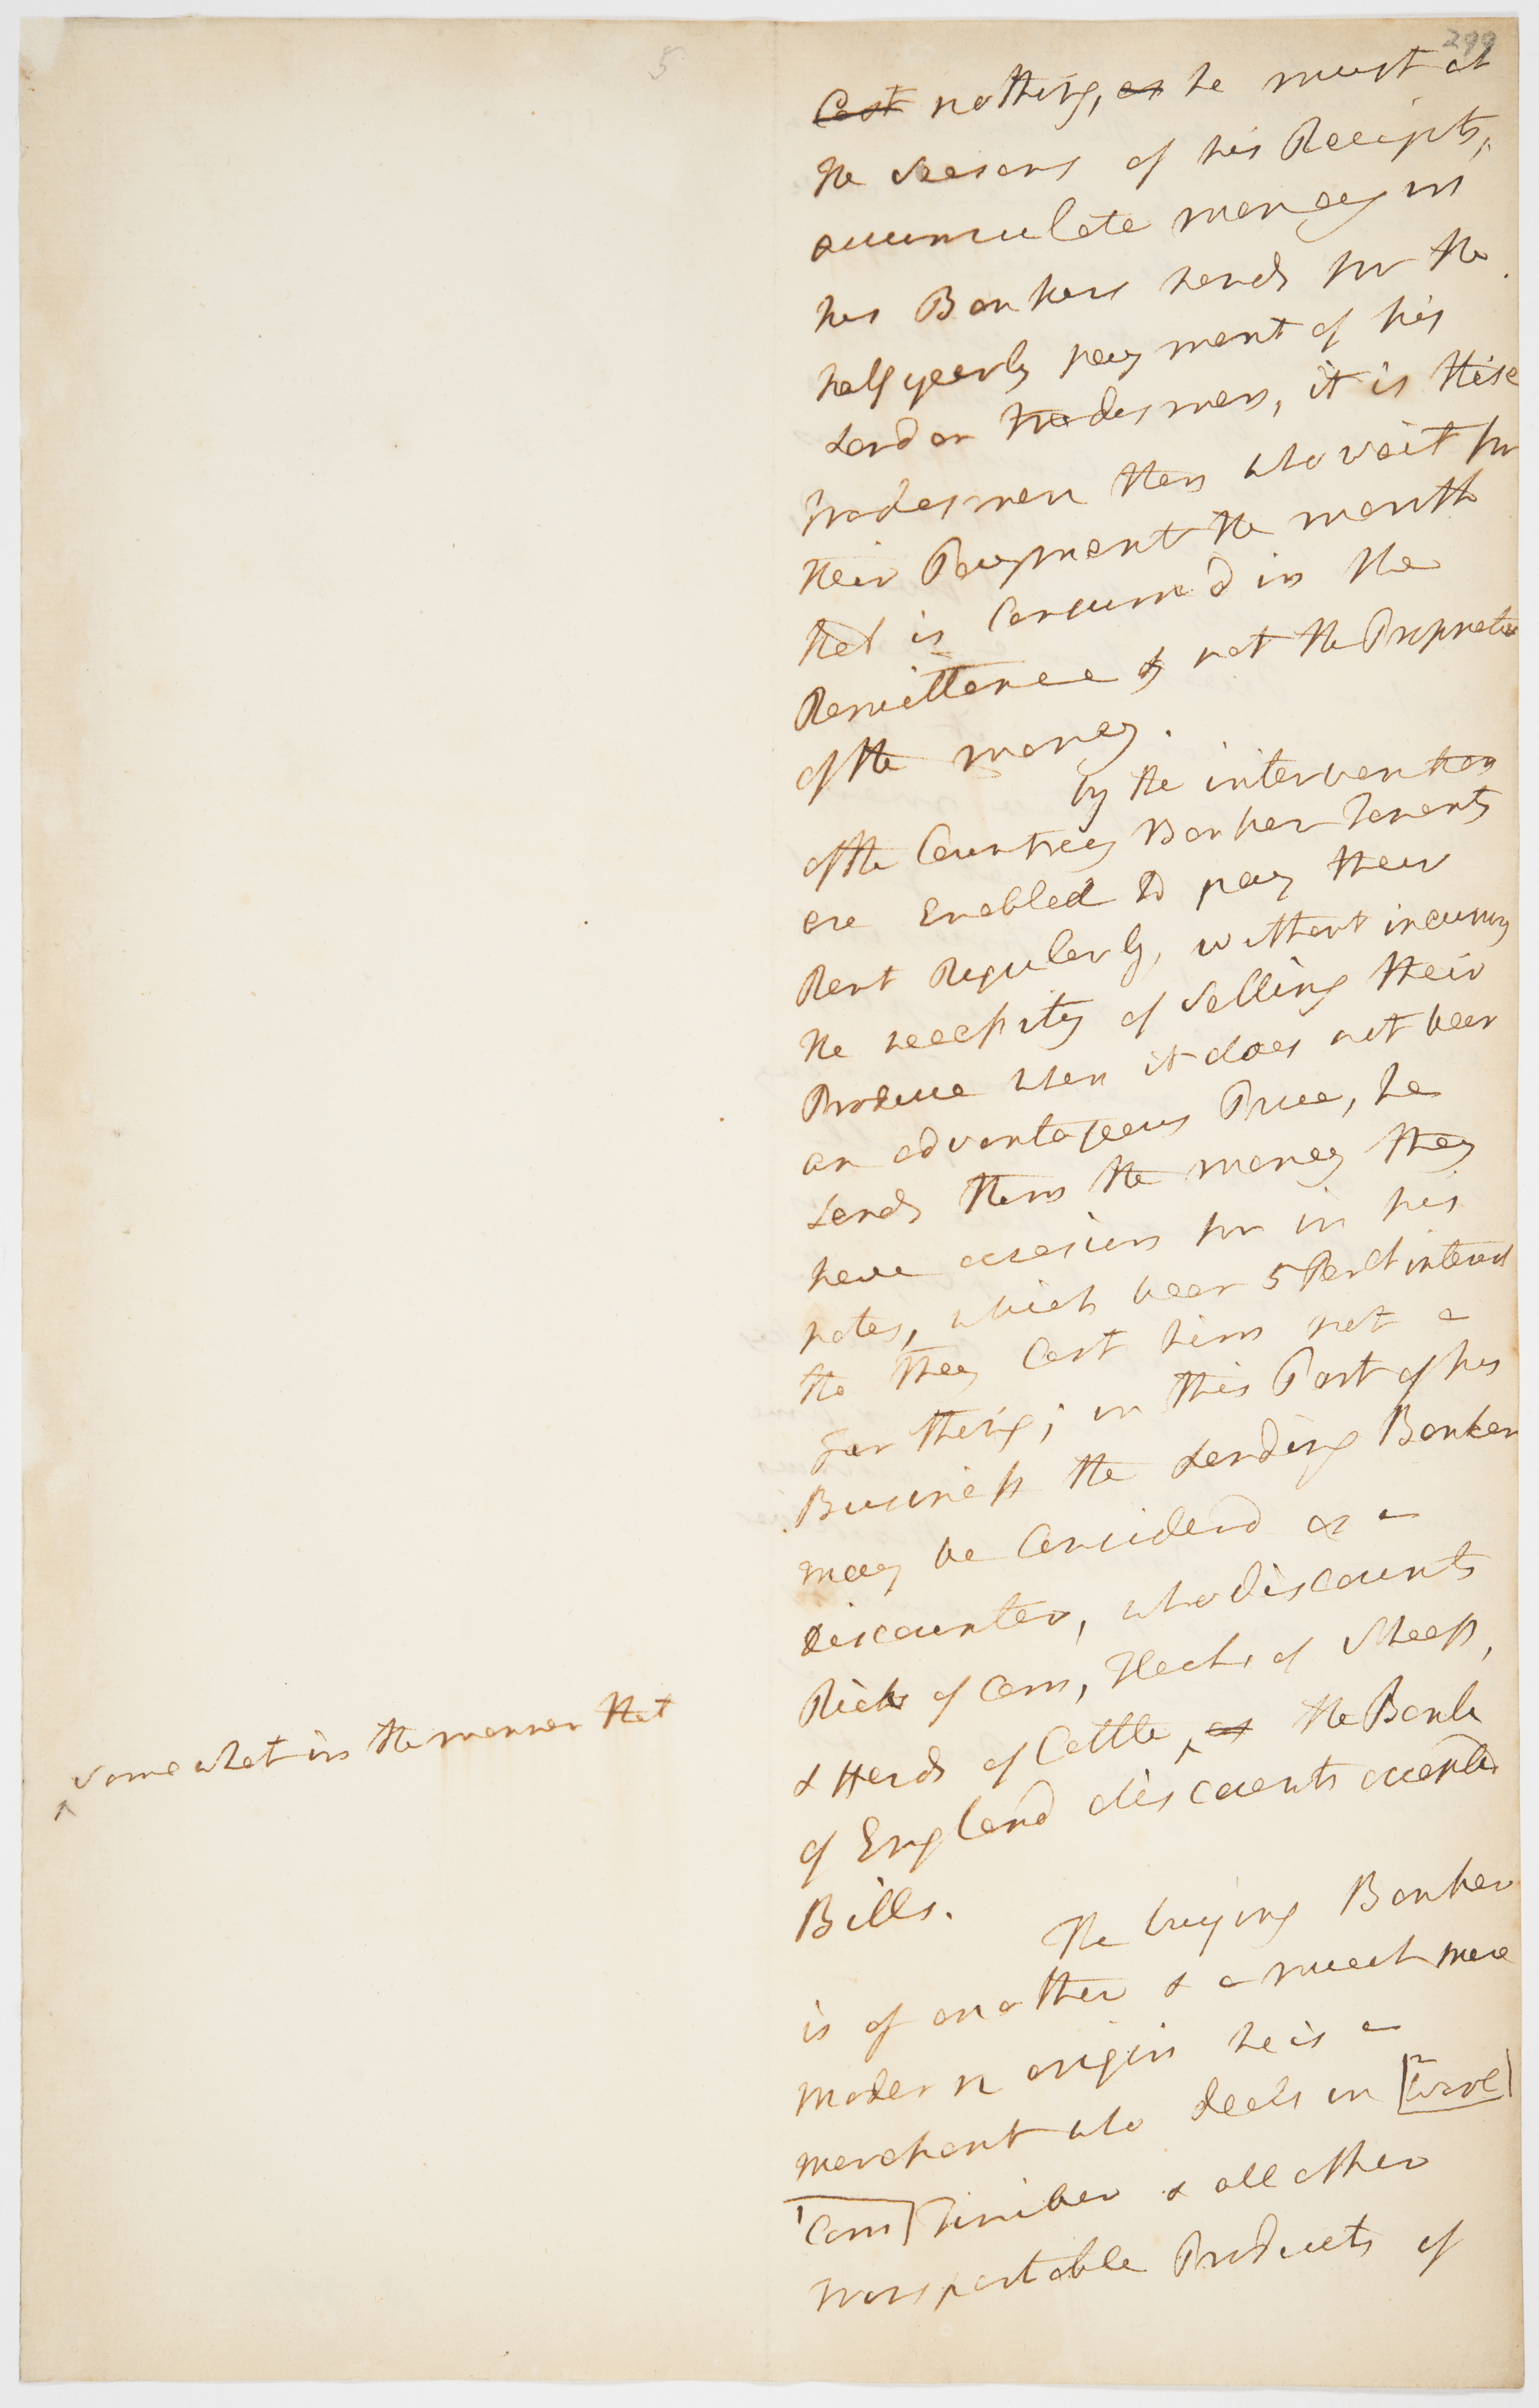 5
299
Cost nothing, as he must at
the Seasons of his Receipts,
accumulate money in
his Bankers hands for the
half yearly payment of his
London tradesmen, it is these
tradesmen then who wait for
their Payment the month
that is Consumd in the
Remittance & not the Proprietor
of the money.
by the intervention
of the Countrey Banker tenants
are Enabled to pay their
Rent Regularly, without incurring
the necessity of Selling their
Produce when it does not bear
an advantageous Price, he
Lends them the money they
have occasion for in his
notes, which bear 5 Per Ct interest
tho they Cost him not a
farthing; in this Part of his
Business the Lending Banker
may be Considerd as a
discounter, who discounts
Ricks of Corn, Flocks of Sheep,
& Herds of Cattle, ^ as the Bank
^ somewhat in the manner that
of England discounts accepted
Bills.
The buying Banker
is of another & a much more
modern origin he is a
merchant who deals in [2 wool]
[1 Corn] Timber & all other
transportable Products of